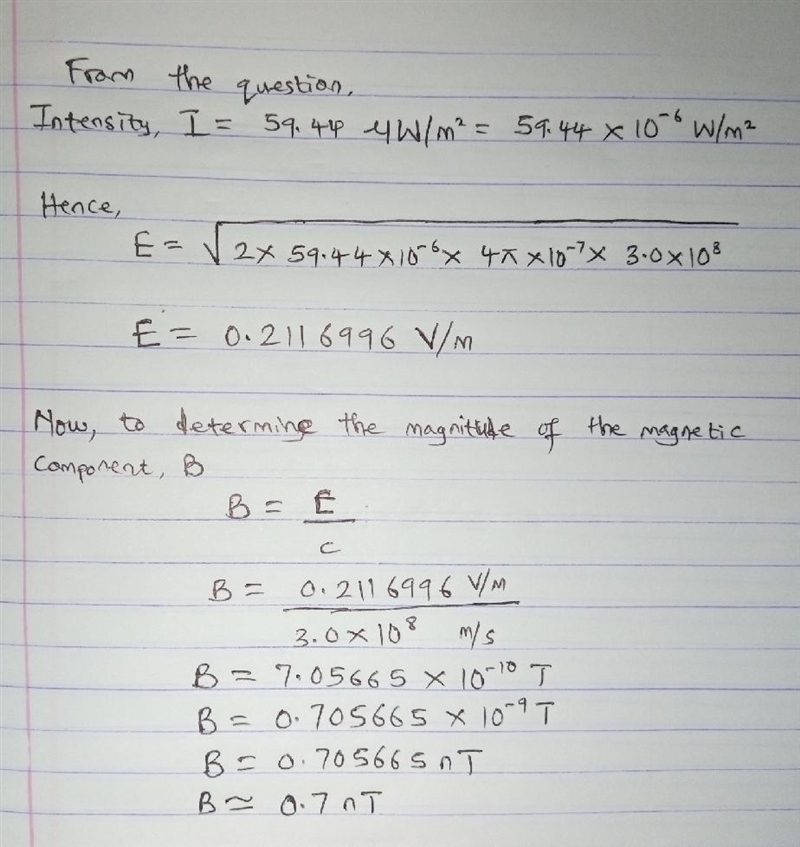 From the question,
Intensity, I = 59.44 μW/m² = 59.44 × 10⁻⁶ W/m²
Hence,
E = √2× 59.44×10⁻⁶× 4π×10⁻⁷× 3.0×10⁸
E = 0.2116996 V/m
Now, to determine the magnitude of the magnetic
component, B
B = E
c
B = 0.2116996 V/M
3.0×10⁸ m/s
B = 7.05665 × 10⁻¹⁰ T
B = 0.705665 × 10⁻⁹ T
B = 0.705665 nT
B ≃ 0.7 nT